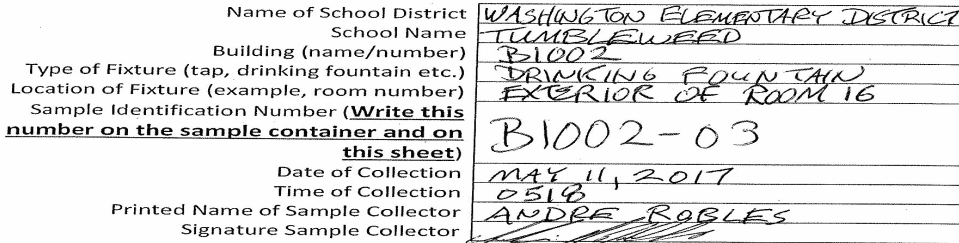 Name of School District WASHINGTON ELEMENTARY DISTRICT
School Name TUMBLEWEED
Building (name/number) B1002
Type of Fixture (tap, drinking fountain etc.) DRINKING FOUNTAIN
Location of Fixture (example, room number) EXTERIOR OF ROOM 16
Sample Identification Number (Write this
number on the sample container and on
this sheet) B1002-03
Date of Collection MAY 11, 2017
Time of Collection 0518
Printed Name of Sample Collector ANDRE ROBLES
Signature Sample Collector